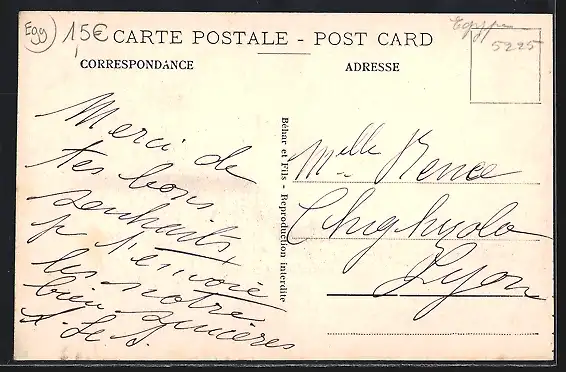 Egy 15€
Egypte
5225
CARTE POSTALE - POST CARD
CORRESPONDANCE
ADRESSE
Merci de
tes bons
souhaits
t'envoie
les notre
bien sincères
Béhar et Fils - Reproduction interdite
Melle Renee
Lyon